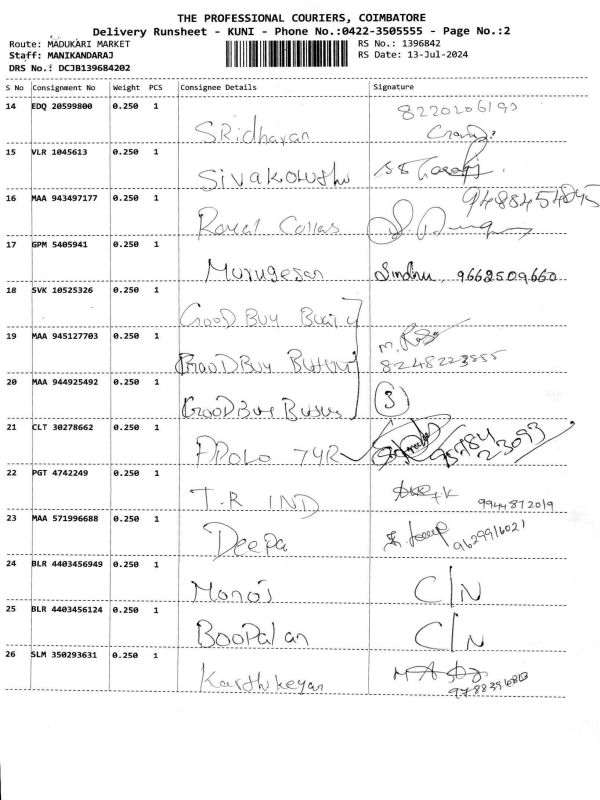 THE PROFESSIONAL COURIERS, COIMBATORE
Delivery Runsheet - KUNI - Phone No.:0422-3505555 - Page No.:2
Route: MADUKARI MARKET
RS No.: 1396842
Staff: MANIKANDARAJ
RS Date: 13-Jul-2024
DRS No.: DCJB139684202
S No Consignment No Weight PCS Consignee Details Signature
14 EDQ 20599800 0.250 1
8220206193
SRidharan
15 VLR 1045613 0.250 1
16 MAA 943497177 0.250 1
Royal
17 GPM 5405941 0.250 1
Murugesan Sindhu, 9662509660
18 SVK 10525326 0.250 1
GooD Buy
19 MAA 945127703 0.250 1
GooD Buy
8248223555
20 MAA 944925492 0.250 1
GooD Buy
3
21 CLT 30278662 0.250 1
22 PGT 4742249 0.250 1
T.R IND 9944872019
23 MAA 571996688 0.250 1
Deepa 9629916021
24 BLR 4403456949 0.250 1
Manoj C/N
25 BLR 4403456124 0.250 1
BooPalan C/N
26 SLM 350293631 0.250 1
Karthikeyan